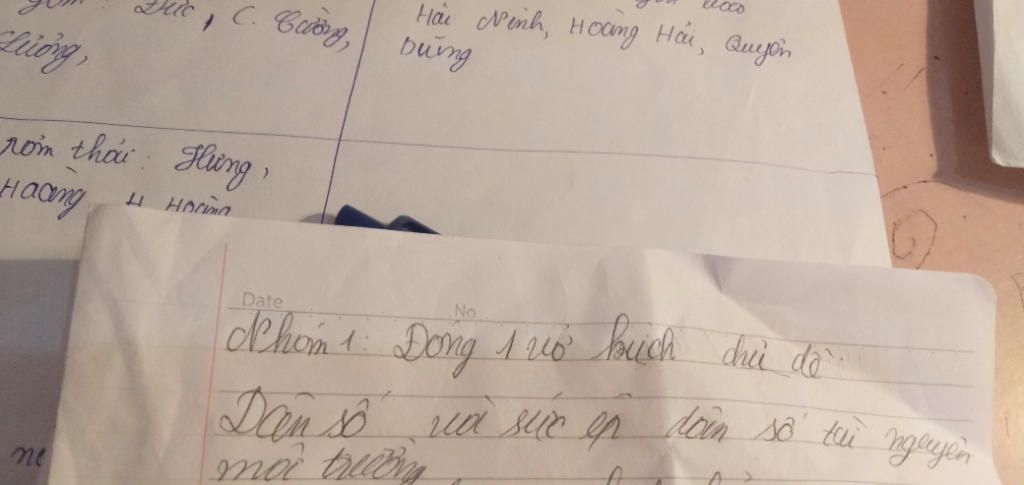 gồm: Đức, C. Cường,
Lưỡng,
Hải Ninh, Hoàng Hải, Quyền
Dũng
thái: Hưng,
Hoàng H. Hoàng
Date No
Nhóm 1: Đóng 1 vở kịch chủ đề
Dân số và sức ép dân số tài nguyên
môi trường